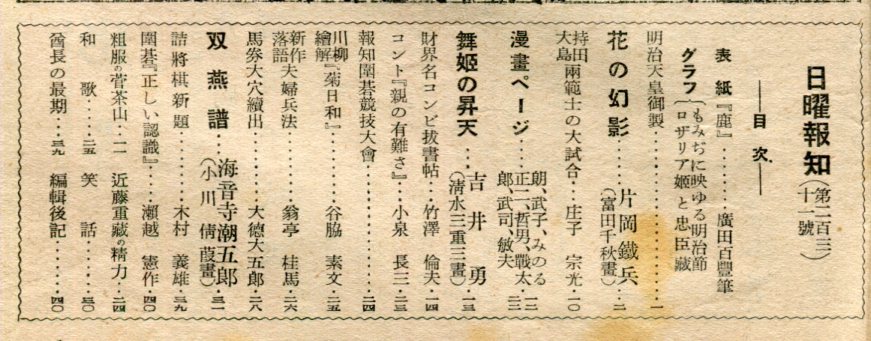 日曜報知(第二百三十一號)
――目次――
表紙『鹿』‥‥‥廣田百豐筆
グラフ{もみぢに映ゆる明治節
ロザリア姬と忠臣藏
明治天皇御製‥‥‥‥‥‥‥‥‥一
花の幻影‥‥‥片岡鐵兵‥二
(富田千秋畫)
持田大島兩範士の大試合‥庄子宗光‥一〇
漫畫ページ‥‥朗、武子、みのる‥一二
正二、哲男、戰太郎、武司、敏夫‥二二
舞姬の昇天‥‥吉井勇‥一三
(清水三重三畫)
財界名コンビ拔書帖‥‥竹澤倫夫‥一四
コント『親の有難さ』‥‥小泉長三‥二三
報知圍碁競技大會‥‥‥‥‥‥‥二四
川柳繪解『菊日和』‥‥‥谷脇素文‥二五
新作落語夫婦兵法‥‥‥翁亭桂馬‥二六
馬券大穴續出‥‥‥大德大五郎‥二八
双燕譜‥‥海音寺潮五郎‥三一
(小川倩葭畫)
詰將棋新題‥‥‥木村義雄‥三九
圍碁『正しい認識』‥‥瀨越憲作‥四〇
粗服の菅茶山‥‥二 近藤重藏の精力‥二四
和歌‥‥‥二五 笑話‥‥‥三〇
酋長の最期‥‥三九 編輯後記‥‥‥四〇